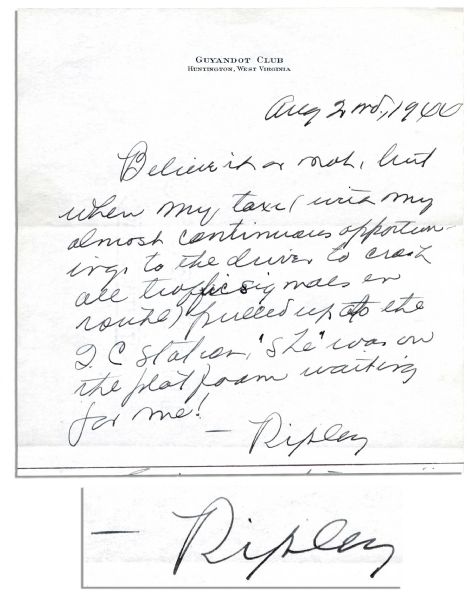 GUYANDOT CLUB
HUNTINGTON, WEST VIRGINIA
Aug 2nd, 1940
Believe it or not, but
when my taxi (with my
almost continuous opportun-
ings to the driver to crash
all traffic signals en
route) pulled up to the
I C Station, "she" was on
the platform waiting
for me!
— Ripley
— Ripley